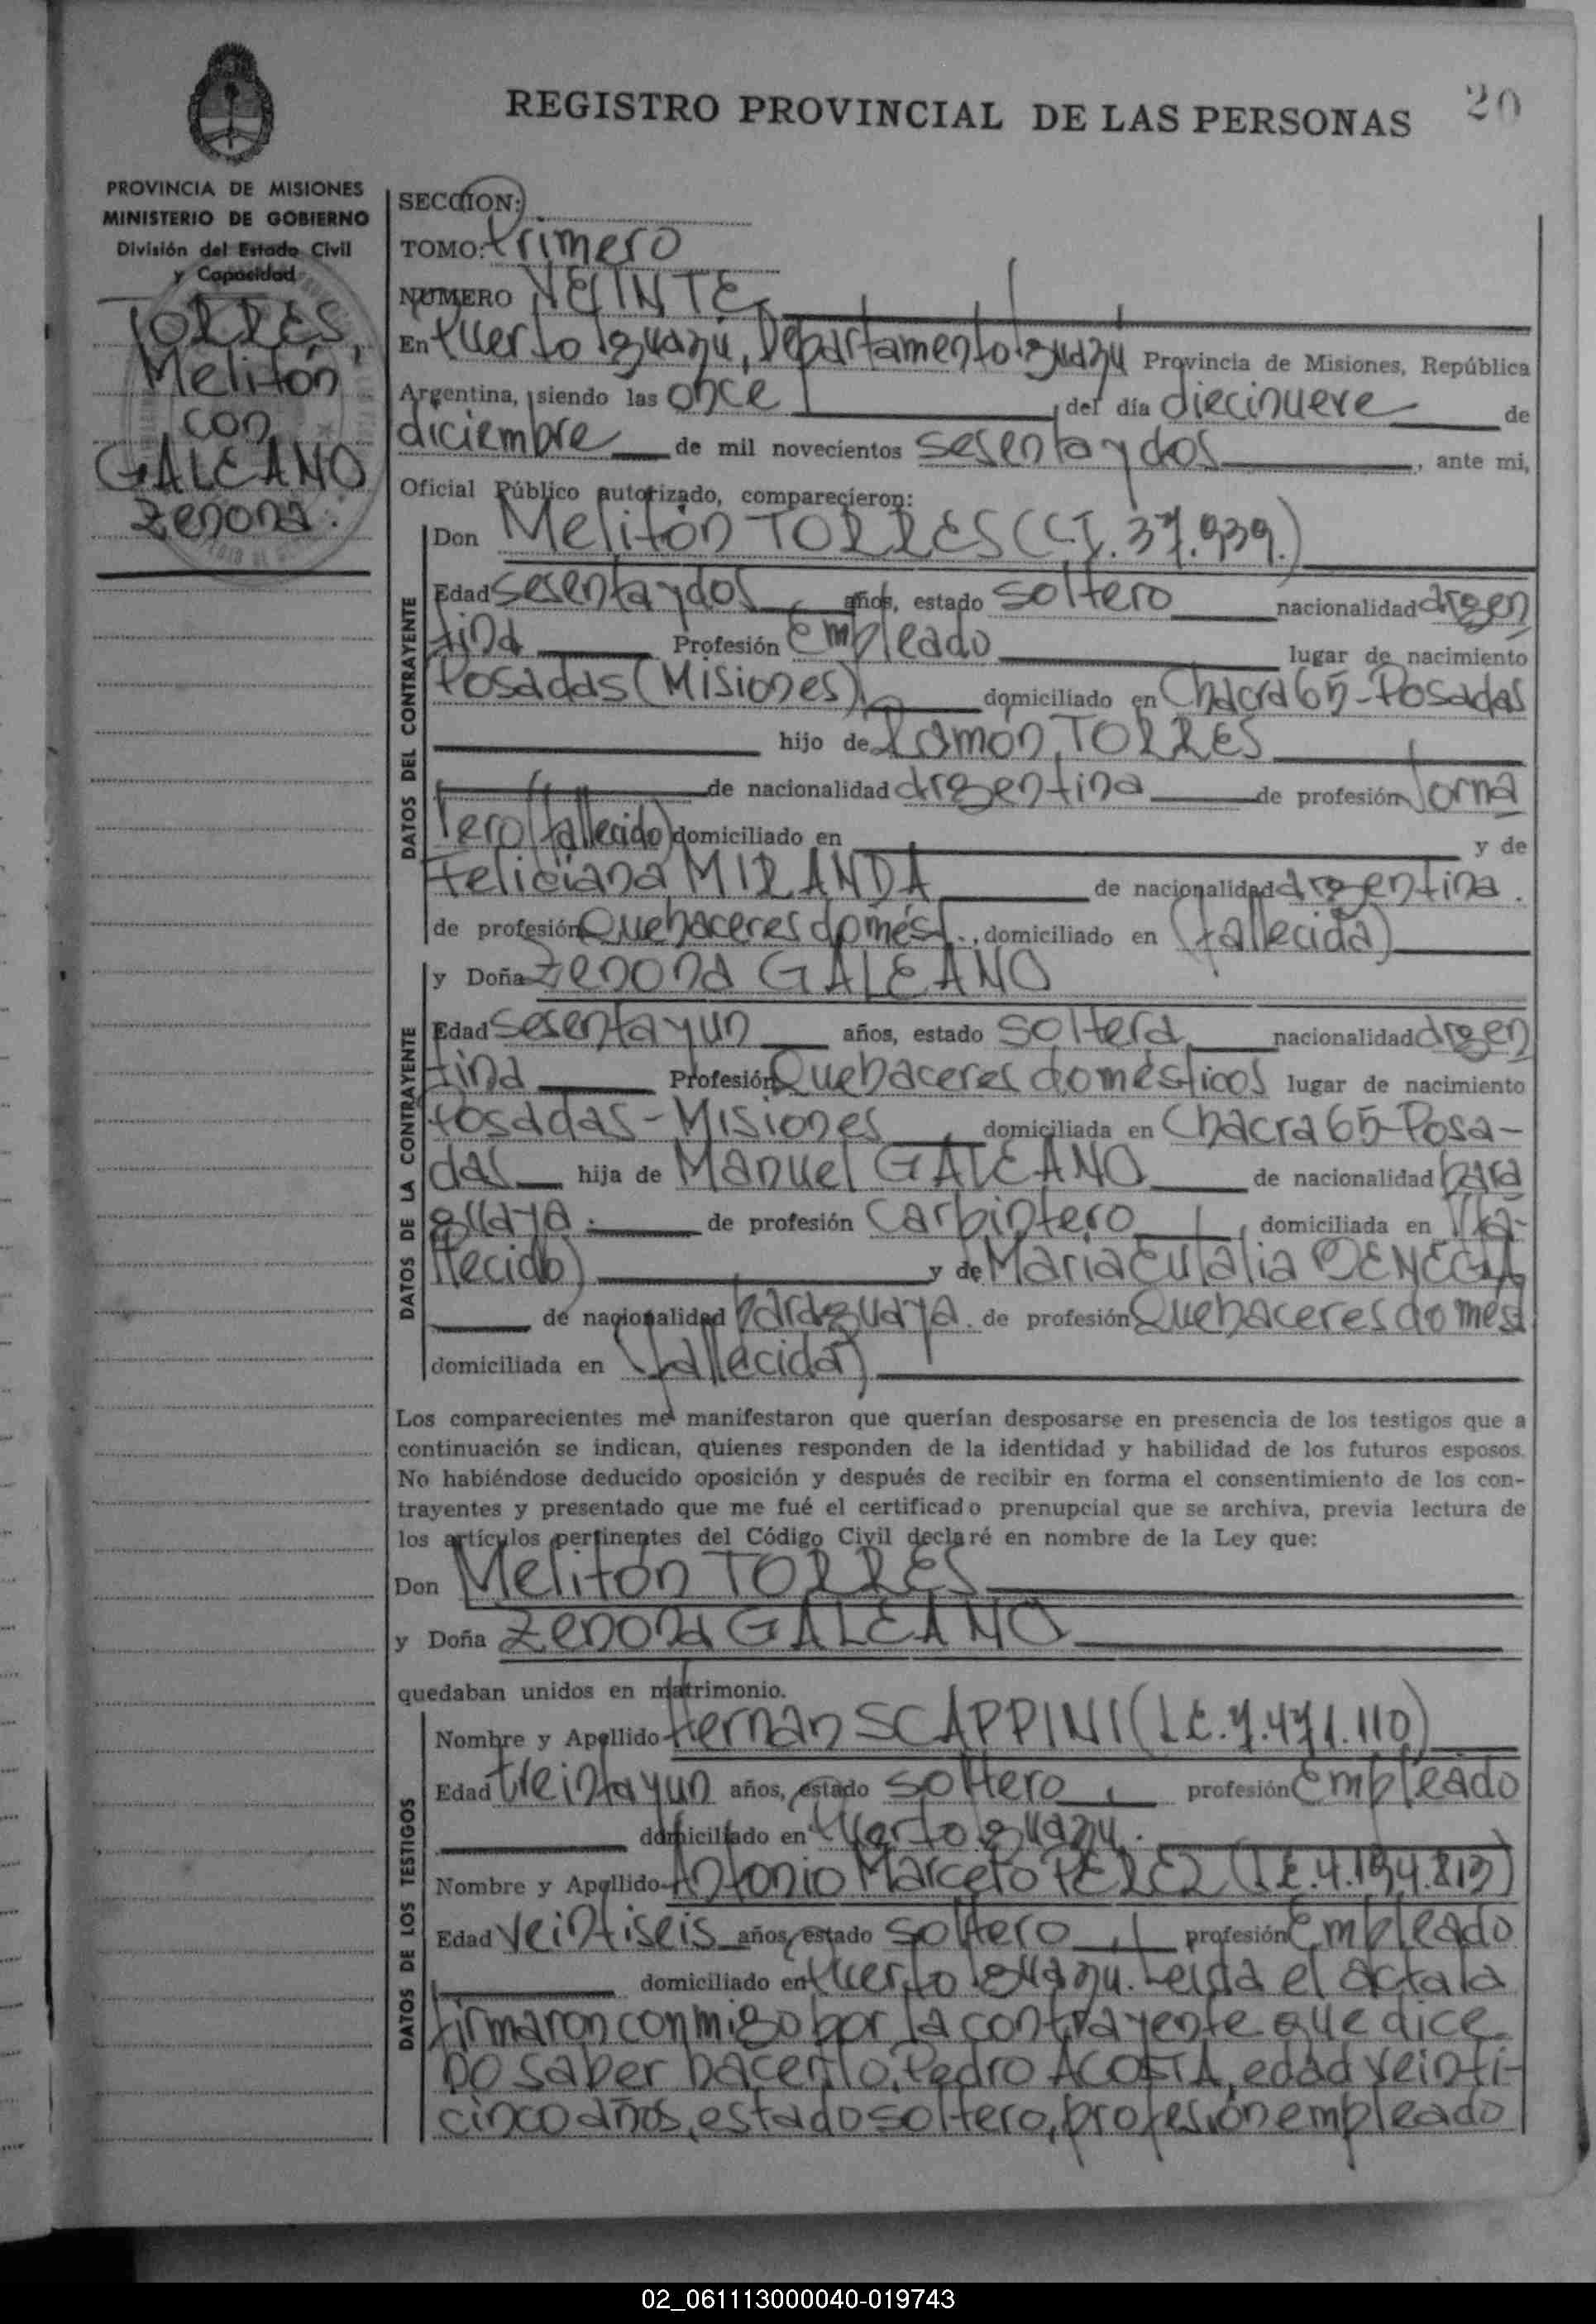 REGISTRO PROVINCIAL DE LAS PERSONAS
20
PROVINCIA DE MISIONES
MINISTERIO DE GOBIERNO
División del Estado Civil
y Capacidad
TORRES,
Melitón
con
GALEANO
Zenona.
SECCION:
TOMO: Primero
NUMERO VEINTE
En Puerto Iguazú, Departamento Iguazú Provincia de Misiones, República
Argentina, siendo las once del día diecinueve de
diciembre de mil novecientos sesenta y dos, ante mi,
Oficial Público autorizado, comparecieron:
DATOS DEL CONTRAYENTE
Don Melitón TORRES (C.I. 37.939.)
Edad sesenta y dos años, estado soltero nacionalidad argen
tina Profesión Empleado lugar de nacimiento
Posadas (Misiones), domiciliado en Chacra 65-Posadas
hijo de Ramon TORRES
de nacionalidad argentina de profesión Jorna
lero (fallecido) domiciliado en y de
Feliciana MIRANDA de nacionalidad argentina.
de profesión Quehaceres domést., domiciliado en (fallecida)
DATOS DE LA CONTRAYENTE
y Doña Zenona GALEANO
Edad sesenta y un años, estado soltera nacionalidad argen
tina Profesión Quehaceres domésticos lugar de nacimiento
Posadas-Misiones, domiciliada en Chacra 65-Posa-
das hija de Manuel GALEANO de nacionalidad para
guaya. de profesión Carpintero, domiciliada en (fa-
llecido) y de Maria Eulalia
de nacionalidad paraguaya. de profesión Quehaceres domést
domiciliada en (fallecida)
Los comparecientes me manifestaron que querían desposarse en presencia de los testigos que a
continuación se indican, quienes responden de la identidad y habilidad de los futuros esposos.
No habiéndose deducido oposición y después de recibir en forma el consentimiento de los con-
trayentes y presentado que me fué el certificado prenupcial que se archiva, previa lectura de
los artículos pertinentes del Código Civil declaré en nombre de la Ley que:
Don Melitón TORRES
y Doña Zenona GALEANO
quedaban unidos en matrimonio.
DATOS DE LOS TESTIGOS
Nombre y Apellido Hernan SCAPPINI (L.E. 7.471.110)
Edad treinta y un años, estado soltero, profesión Empleado
domiciliado en Puerto Iguazú.
Nombre y Apellido Antonio Marcelo PEREZ
Edad veintiseis años, estado soltero, profesión Empleado
domiciliado en Puerto Iguazu. Leida el acta la
firmaron conmigo por la contrayente que dice
no saber hacerlo, Pedro ACOSTA, edad veinti-
cinco años, estado soltero, profesión empleado
02_061113000040-019743